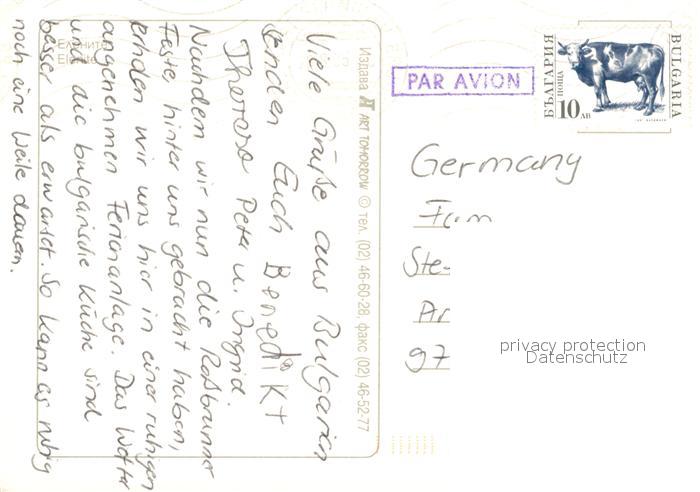 Viele Grüße aus Bulgarien
senden Euch Benedikt
Theresa Peter u. Ingrid.
Nachdem wir nun die Roßbrunner
Feste, hinter uns gebracht haben,
erholen wir uns hier in einer ruhigen
angenehmen Ferienanlage. Das Wetter
und die bulgarische Küche sind
besser als erwartet. So kann es ruhig
noch eine Weile dauern.
Елените
Elenite
Издава ART TOMORROW © тел. (02) 46-60-28, факс (02) 46-52-77
PAR AVION
БЪЛГАРИЯ
ПОЩА
10 ЛВ
BULGARIA
Germany
Fam
Ste
Ar
97
privacy protection
Datenschutz